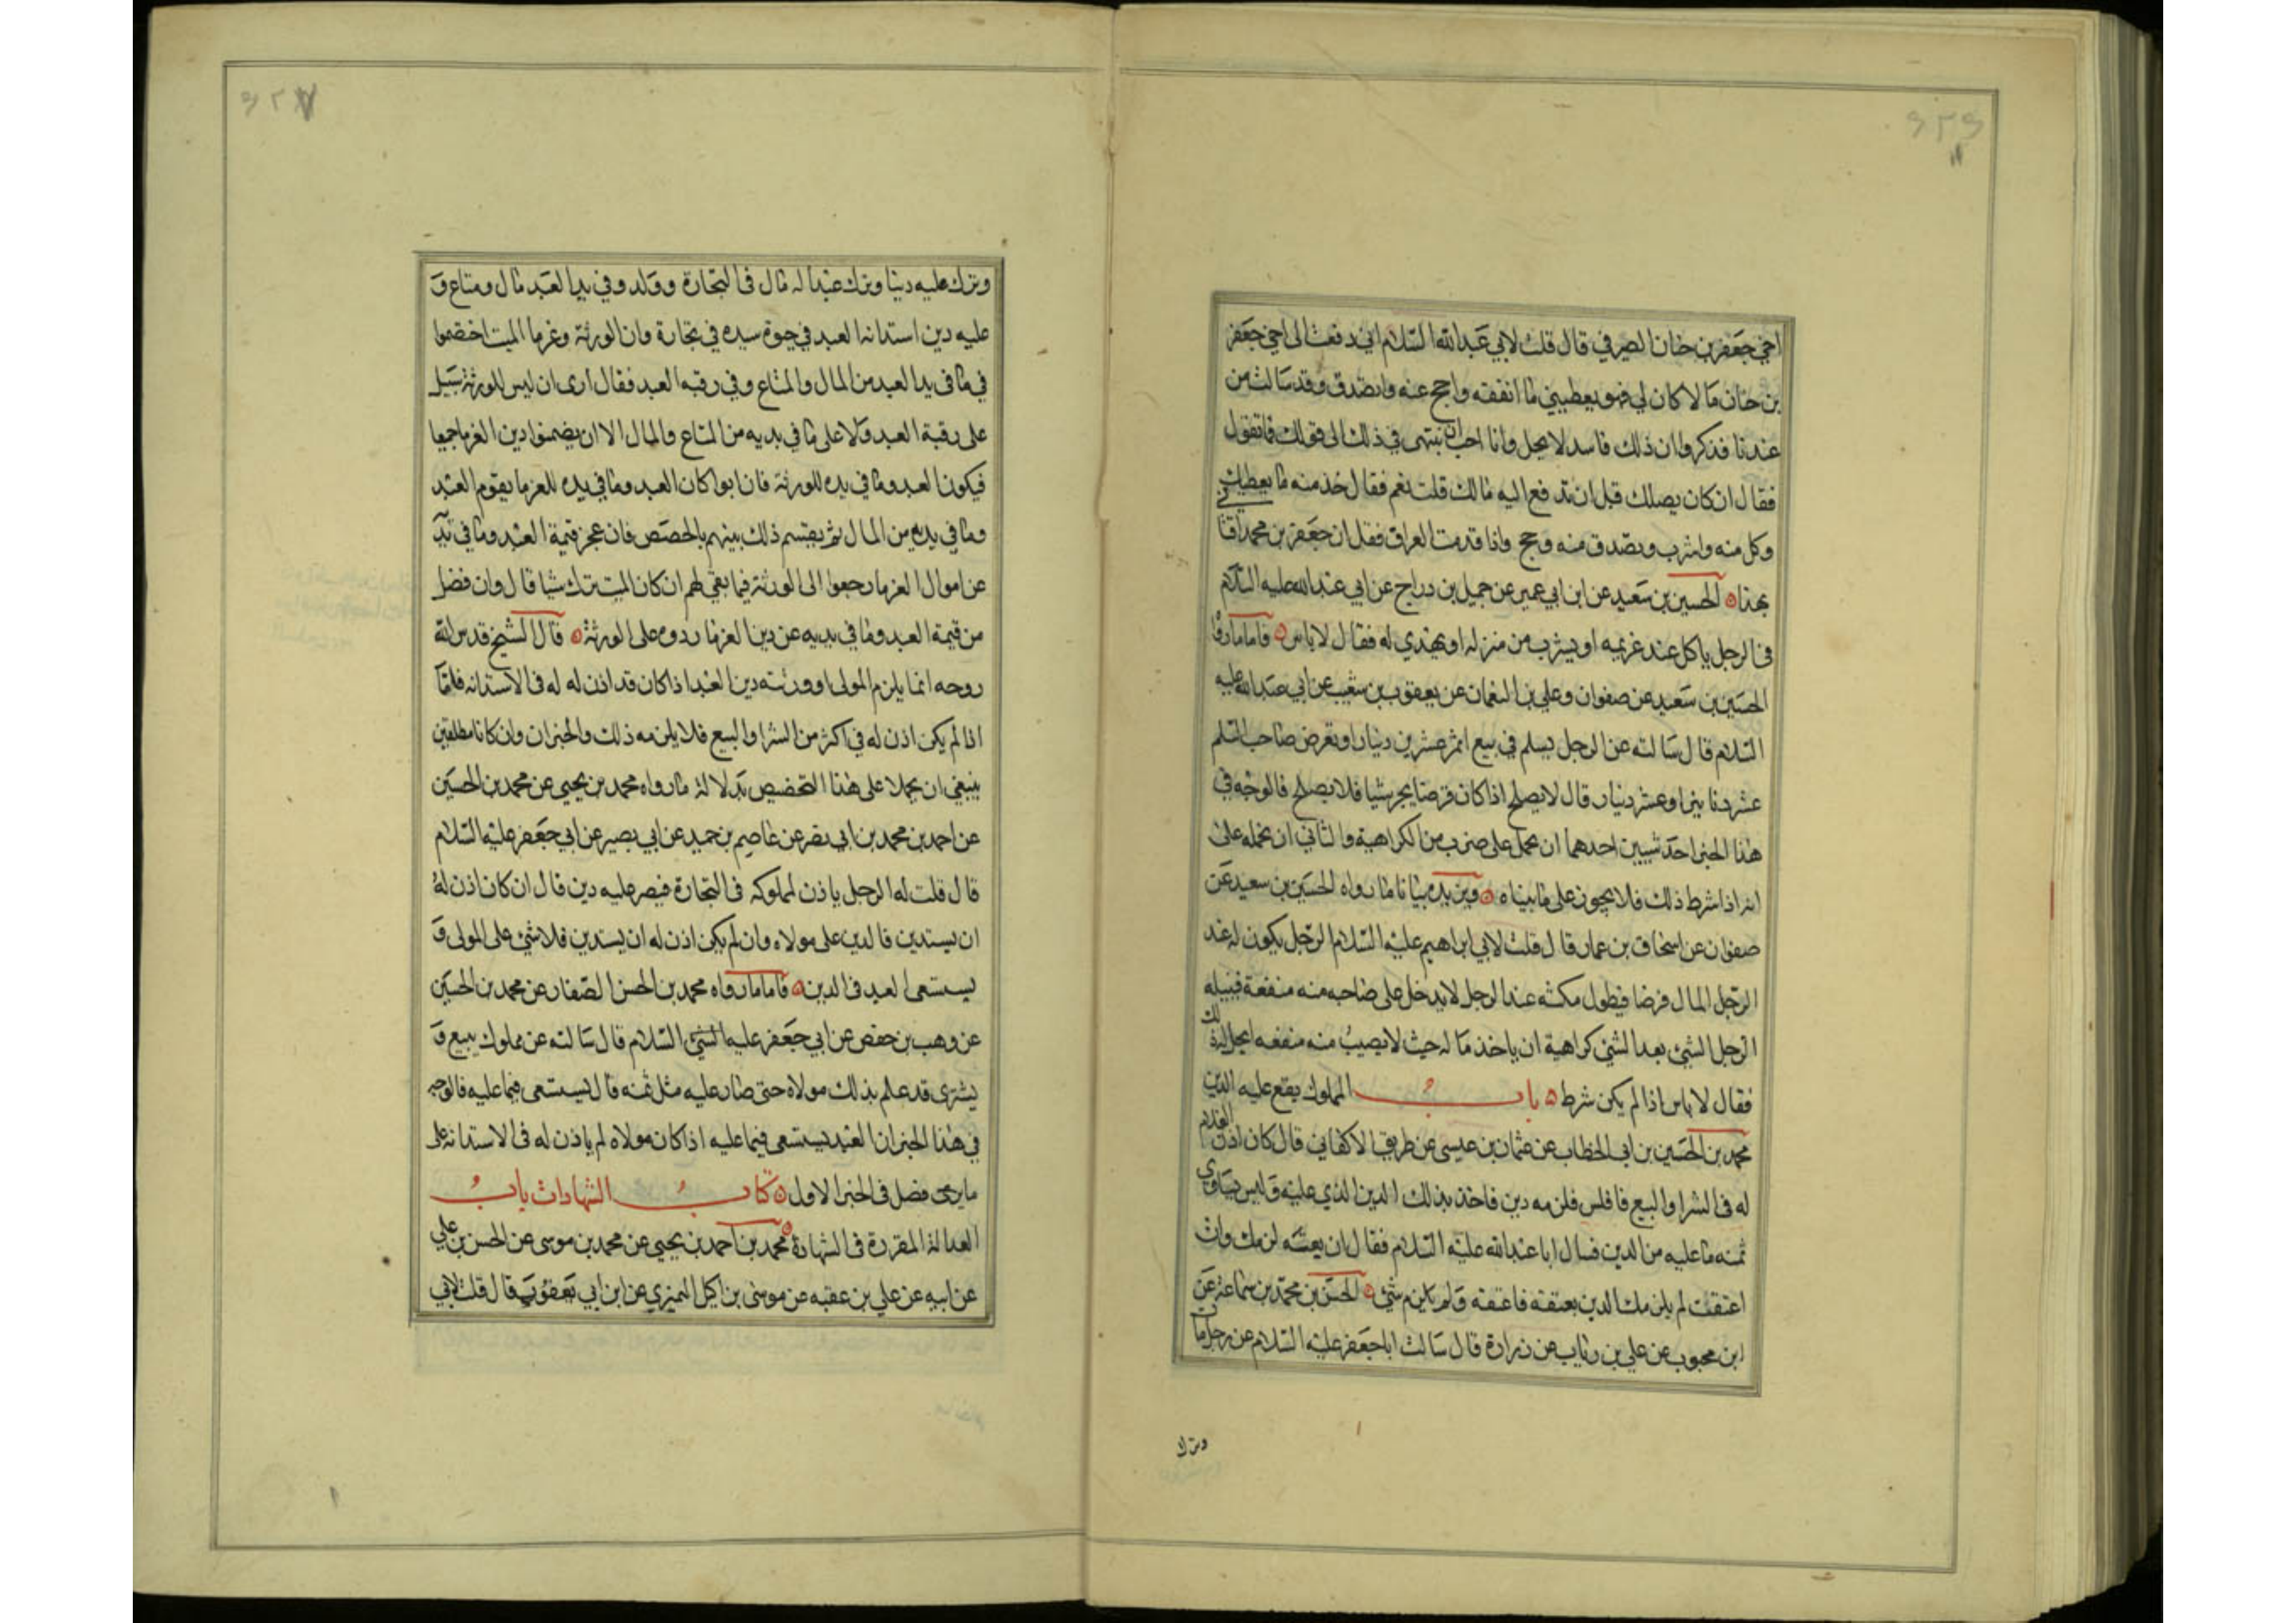 اخي جعفر بن حنان الصيرفي قال قلت لابي عبدالله السلام اني دفعت الى اخي جعفر
بن حنان مالا كان لي فهو يعطيني ما انفقه واحج عنه واتصدق وقد سالت من
عندنا فذكروا ان ذلك فاسد لا يحل وانا احب ان ننتهى في ذلك الى قولك فما تقول
فقال ان كان يصلك قبل ان تدفع اليه مالك قلت نعم فقال خذ منه ما يعطيك
وكل منه واشرب وتصدق منه وحج واذا قدمت العراق فقل ان جعفر بن محمد افتاني
بهذا الحسين بن سعيد عن ابن ابي عمير عن جميل بن دراج عن ابي عبدالله عليه السلام
في الرجل ياكل عند غريمه او يشرب من منزله او يهدي له فقال لا باس فاما ما رواه
الحسين بن سعيد عن صفوان وعلي بن النعمان عن يعقوب بن شعيب عن ابي عبدالله عليه
السلام قال سالته عن الرجل يسلم في بيع عشرين دينارا ويقرض صاحب السلم
عشر دنانير او عشر دينار قال لا يصلح اذا كان قرضا يجر شيا فلا يصلح فالوجه في
هذا الخبر احد شيين احدهما ان يحمل على ضرب من الكراهية والثاني ان نحمله على
انه اذا شرط ذلك فلا يجوز على ما بيناه ويزيده بيانا ما رواه الحسين بن سعيد عن
صفوان عن اسحاق بن عمار قال قلت لابي ابراهيم عليه السلام الرجل يكون له عند
الرجل المال قرضا فيطول مكثه عند الرجل لا يدخل على صاحبه منه منفعة فينيله
الرجل الشئ بعد الشئ كراهية ان ياخذ ماله حيث لا يصيب منه منفعه ايحل له ذلك
فقال لا باس اذا لم يكن شرط باب المملوك يقع عليه الدين
محمد بن الحسين بن ابي الخطاب عن عثمان بن عيسى عن ظريف الاكفاني قال كان اذن لغلام
له في الشرا والبيع فافلس فلزمه دين فاخذ بذلك الدين الذي عليه وليس يساوي
ثمنه ما عليه من الدين فسال ابا عبدالله عليه السلام فقال ان بعته لزمك وان
اعتقت لم يلزمك الدين بعتقه فاعتقه ولم يلزم شئ الحسن بن محمد بن سماعة عن
ابن محبوب عن علي بن رئاب عن زرارة قال سالت ابا جعفر عليه السلام عن رجل مات
وترك
وترك عليه دينا وترك عبدا له مال في التجارة وولد وفي يد العبد مال ومتاع و
عليه دين استدانه العبد في حيوة سيده في تجارة وان الورثة وغرما الميت اختصموا
في ما في يد العبد من المال والمتاع وفي رقبه العبد فقال ارى ان ليس للورثة سبيل
على رقبة العبد ولا على ما في يديه من المتاع والمال الا ان يضمنوا دين الغرما جميعا
فيكون العبد وما في يده للورثة فان ابوا كان العبد وما في يده للغرما يقوم العبد
وما في يديه من المال ثم يقتسم ذلك بينهم بالحصص فان عجز قيمة العبد وما في يديه
عن اموال الغرما رجعوا الى الورثة فيما بقي لهم ان كان الميت ترك شيا قال وان فضل
من قيمة العبد وما في يديه عن دين الغرما ردوه على الورثة قال الشيخ قدس الله
روحه انما يلزم المولى او ورثته دين العبد اذا كان قد اذن له له في الاستدانه فلما
اذا لم يكن اذن له في اكثر من الشرا والبيع فلا يلزمه ذلك والخبران وان كانا مطلقين
ينبغي ان يحملا على هذا التخصيص بدلالة ما رواه محمد بن يحيى عن محمد بن الحسين
عن احمد بن محمد بن ابي نصر عن عاصم بن حميد عن ابي بصير عن ابي جعفر عليه السلام
قال قلت له الرجل ياذن لمملوكه في التجارة فيصر عليه دين قال ان كان اذن له
ان يستدين فالدين على مولاه وان لم يكن اذن له ان يستدين فلا شئ على المولى و
يستسعى العبد في الدين فاما ما رواه محمد بن الحسن الصفار عن محمد بن الحسين
عن وهب بن حفص عن ابي جعفر عليه السلام قال سالته عن مملوك يبيع و
يشترى قد علم بذلك مولاه حتى صار عليه مثل ثمنه قال يستسعى فيما عليه فالوجه
في هذا الخبر ان العبد يستسعى فيما عليه اذا كان مولاه لم ياذن له في الاستدانة على
ما فضل في الخبر الاول كتاب الشهادات باب
العدالة المقررة في الشهادة محمد بن احمد بن يحيى عن محمد بن موسى عن الحسن بن علي
عن ابيه عن علي بن عقبه عن موسى بن اكيل النميزي عن ابن ابي يعفور قال قلت لابي